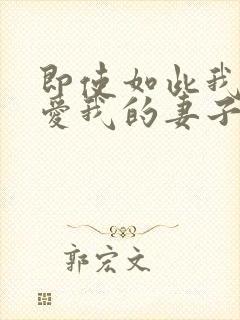 即使如此我
爱我的妻子
郭宏文